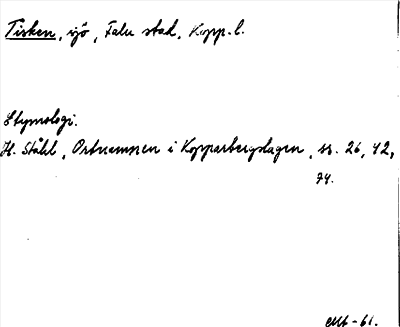 Tisken, sjö, Falu stad, Kopp.l.
Etymologi.
H. Ståhl, Ortnamnen i Kopparbergslagen, ss. 26, 42,
74.
-61.